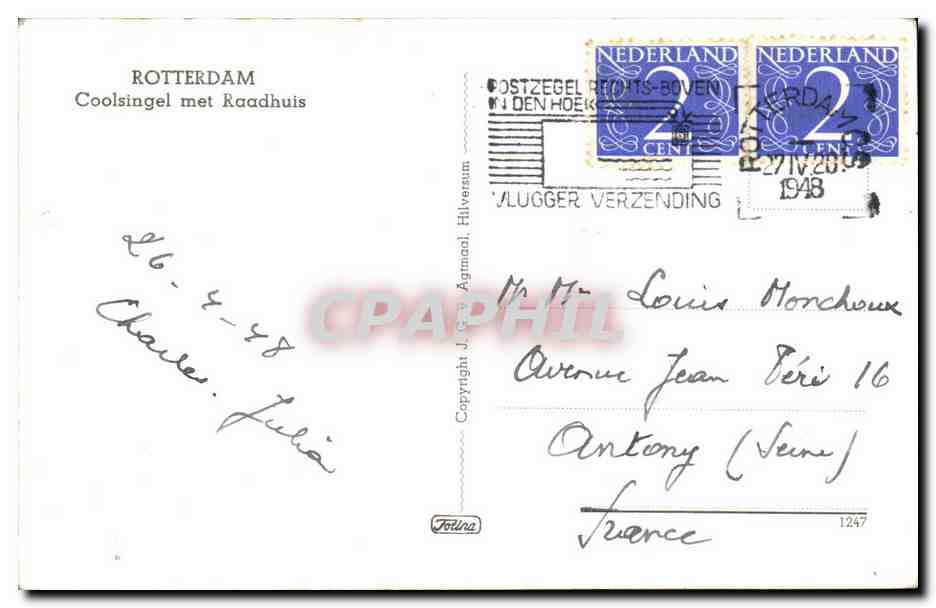 ROTTERDAM
Coolsingel met Raadhuis
26-4-48
Charles. Julia
Copyright J. G. v. Agtmaal, Hilversum
Jolina
NEDERLAND
2
CENT
NEDERLAND
2
CENT
POSTZEGEL RECHTS-BOVEN
IN DEN HOEK
VLUGGER VERZENDING
ROTTERDAM
27 IV 20
1948
CPAPHIL
Mr Mme Louis Monchoux
Avenue Jean Péri 16
Antony (Seine)
France
1247